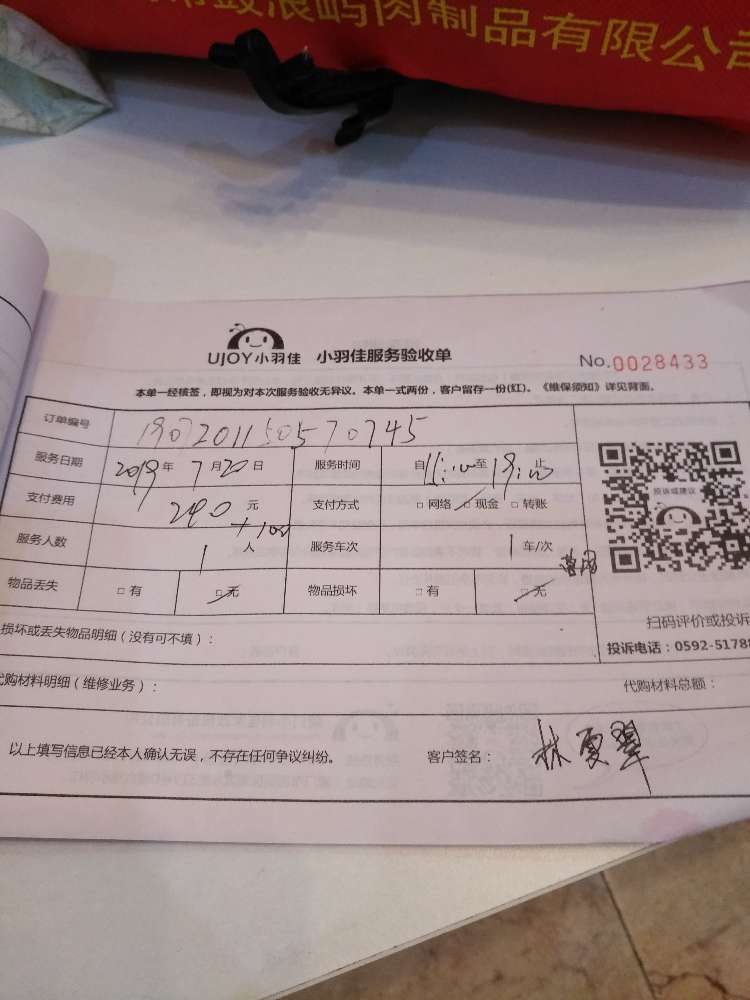 鼓浪屿肉制品有限公司
UJOY小羽佳 小羽佳服务验收单 No.0028433
本单一经核签，即视为对本次服务验收无异议。本单一式两份，客户留存一份(红)。《维保须知》详见背面。
订单编号 1907201150570745
服务日期 2019年7月20日 服务时间 自15:00至19:00止
支付费用 240元 +100 支付方式 □网络 □现金 □转账
服务人数 1人 服务车次 1车/次
物品丢失 □有 □无 物品损坏 □有 □无
投诉或建议
扫码评价或投诉
投诉电话：0592-5178
损坏或丢失物品明细（没有可不填）：
代购材料明细（维修业务）： 代购材料总额：
以上填写信息已经本人确认无误，不存在任何争议纠纷。 客户签名： 林夏翠